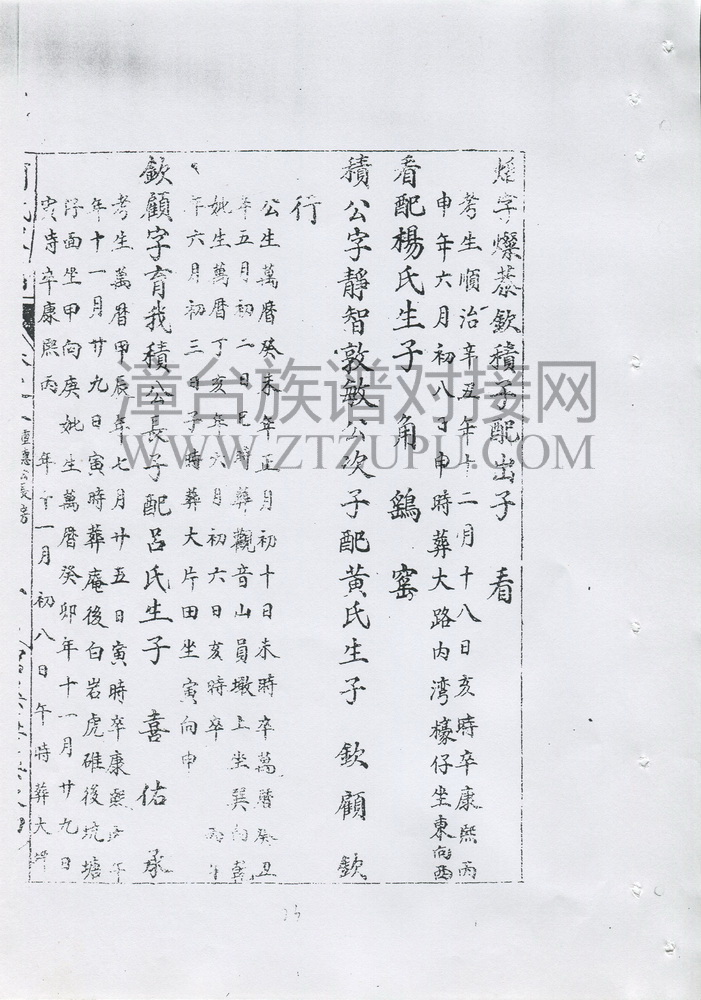 字燦蔡欽積子配出子 看
考生順治辛丑年十二月十八日亥時卒康熙丙
申年六月初八日申時葬大路内湾檺仔坐東向西
看配楊氏生子 角 鷄 窰
積公字靜智敦敏公次子配黄氏生子 欽 顧 欽
行
公生萬曆癸未年正月初十日未時卒萬曆癸丑
年五月初二日巳時葬觀音山員墩上坐巽向乾
妣生萬曆丁亥年六月初六日亥時卒
年六月初三日子時葬大片田坐寅向申
欽顧字育我積公長子配呂氏生子 喜 佑 承
考生萬曆甲辰年七月廿五日寅時卒康熙年
年十一月廿九日寅時葬庵後白岩虎碓後坑塘
仔面坐甲向庚妣生萬曆癸卯年十一月廿九日
時卒康熙丙 年十一月初八日午時葬大
漳台族谱对接网
WWW.ZTZUPU.COM